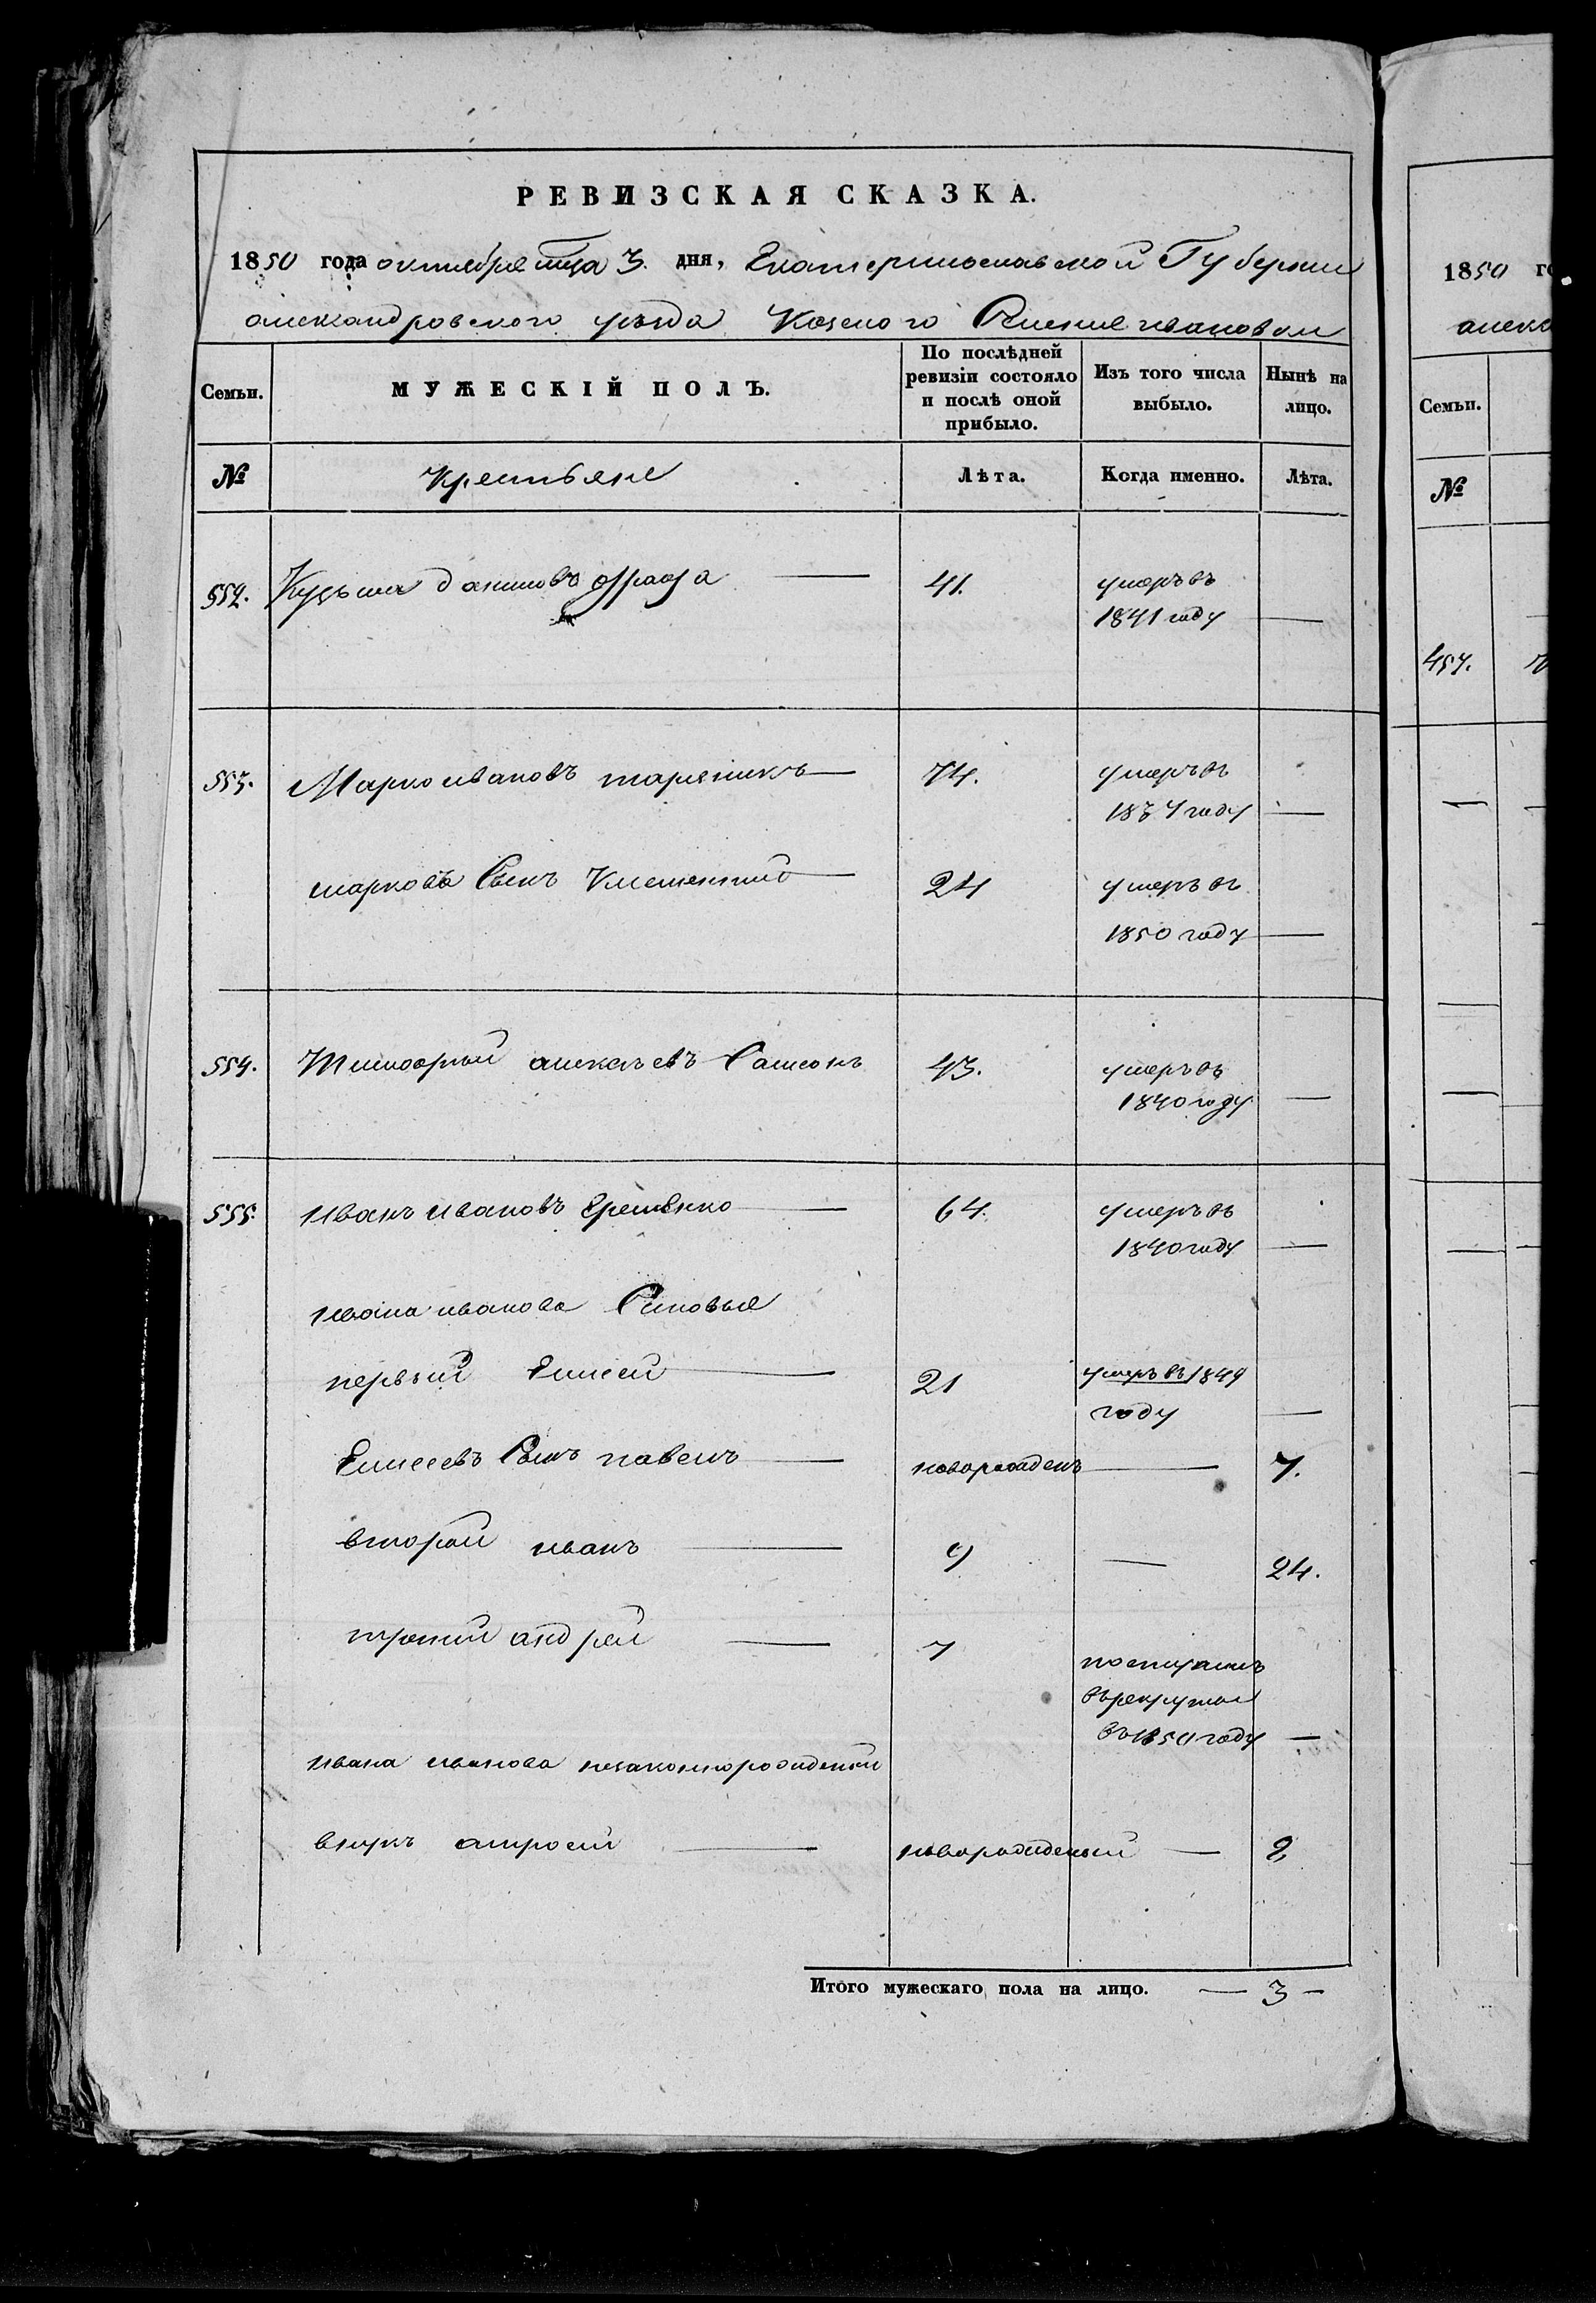 РЕВИЗСКАЯ СКАЗКА.
1850 года октября мца 3. дня, Екатеринославской Губернии
александровского уезда Казеного Селения ивановки
Семьи.
МУЖЕСКІЙ ПОЛЪ.
По послѣдней ревизіи состояло и послѣ оной прибыло.
Изъ того числа выбыло.
Нынѣ на лицо.
№
Крестьяне
Лѣта.
Когда именно.
Лѣта.
552. Кузьма даниловъ 41. умеръ въ
1841 году —
553. Марко ивановъ 74. умеръ въ
1834 году —
маркова Сынъ Климентий 24 умеръ въ
1850 году —
554. Тимофей алексеевъ Самсонъ 43. умеръ въ
1840 году —
555. иванъ ивановъ Еременко — 64. умеръ въ
1840 году —
ивана иванова Сыновья
первый Елисей — 21 умеръ въ 1849
году —
Елисеевъ Сынъ павелъ — новорожденъ — 7.
второй иванъ — 9 — 24.
третий андрей — 7 поступилъ
въ рекруты
въ 1850 году —
ивана иванова незаконнорожденый
внукъ — новорожденый — 2
Итого мужескаго пола на лицо. — 3 —
1850 го
алекса
Семьи.
№
457.